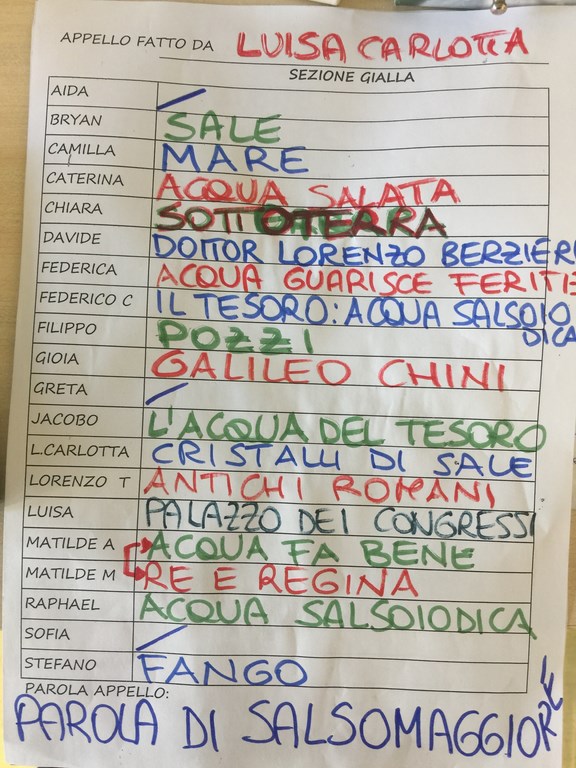 APPELLO FATTO DA LUISA CARLOTTA
SEZIONE GIALLA
AIDA
BRYAN SALE
CAMILLA MARE
CATERINA ACQUA SALATA
CHIARA SOTTOTERRA
DAVIDE DOTTOR LORENZO BERZIERI
FEDERICA ACQUA GUARISCE FERITE
FEDERICO C IL TESORO: ACQUA SALSOIO
DICA
FILIPPO POZZI
GIOIA GALILEO CHINI
GRETA
JACOBO L'ACQUA DEL TESORO
L.CARLOTTA CRISTALLI DI SALE
LORENZO T ANTICHI ROMANI
LUISA PALAZZO DEI CONGRESSI
MATILDE A ACQUA FA BENE
MATILDE M RE E REGINA
RAPHAEL ACQUA SALSOIODICA
SOFIA
STEFANO FANGO
PAROLA APPELLO:
PAROLA DI SALSOMAGGIORE